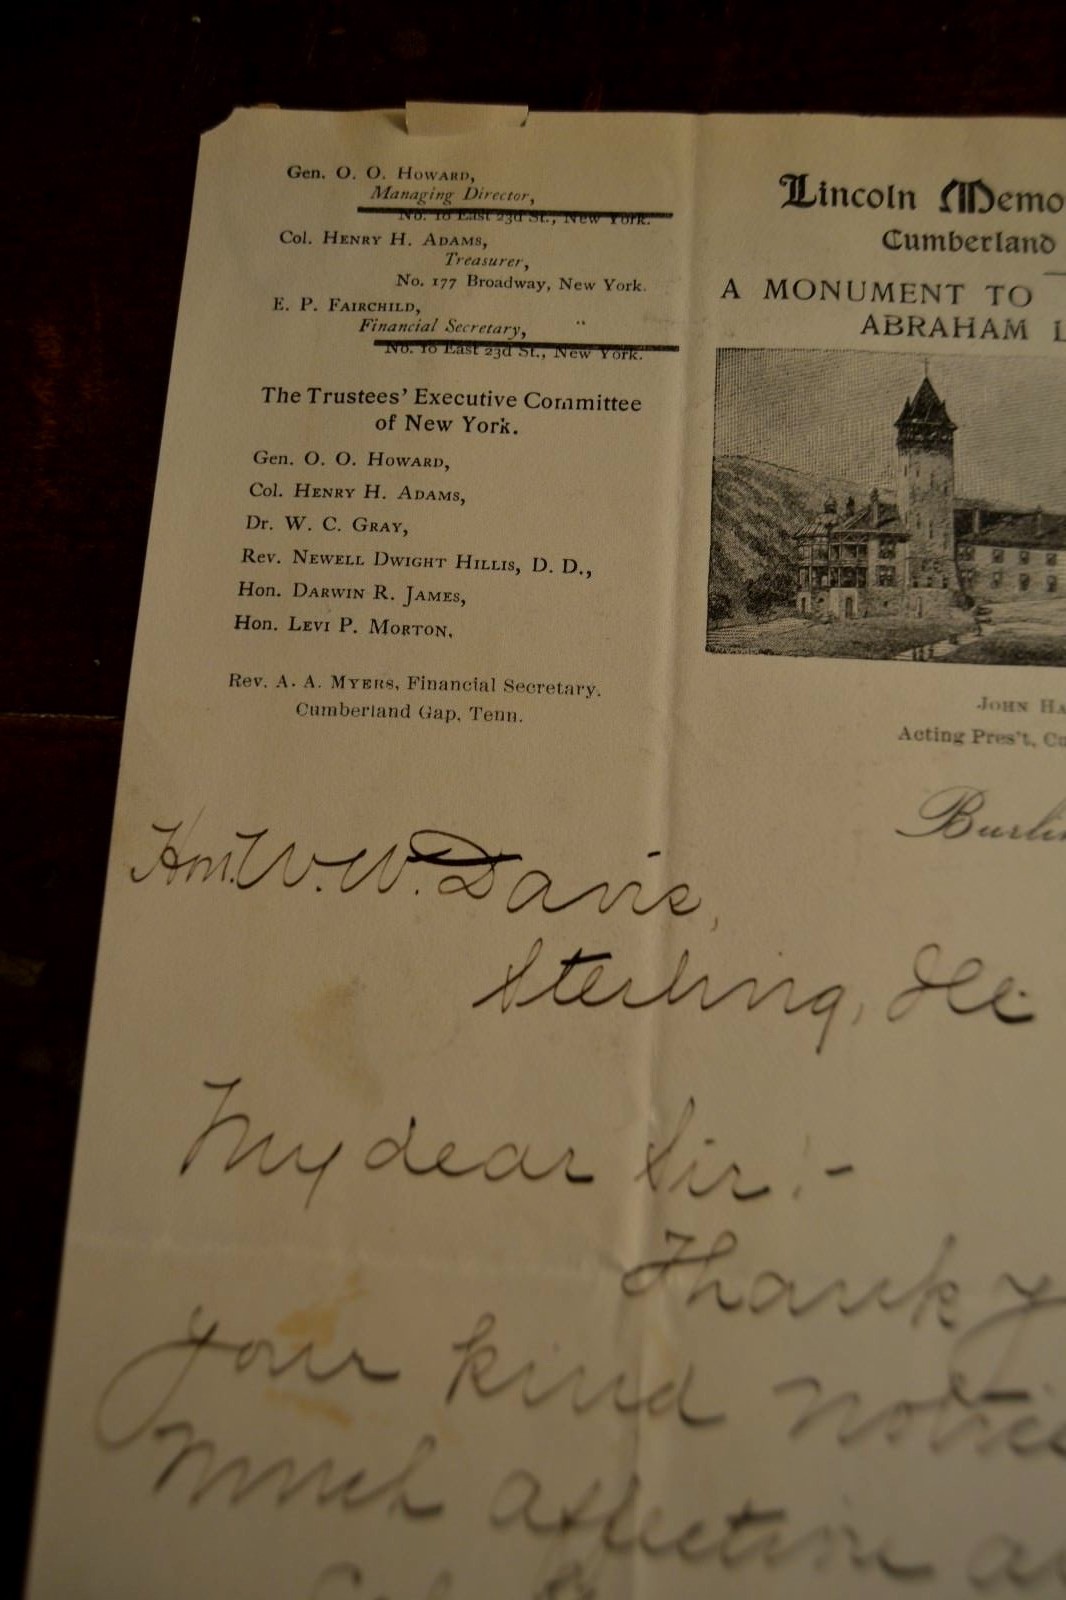 Gen. O. O. Howard,
Managing Director,
No. 10 East 23d St., New York.
Col. Henry H. Adams,
Treasurer,
No. 177 Broadway, New York.
E. P. Fairchild,
Financial Secretary,
No. 10 East 23d St., New York.
The Trustees' Executive Committee
of New York.
Gen. O. O. Howard,
Col. Henry H. Adams,
Dr. W. C. Gray,
Rev. Newell Dwight Hillis, D. D.,
Hon. Darwin R. James,
Hon. Levi P. Morton.
Rev. A. A. Myers, Financial Secretary.
Cumberland Gap, Tenn.
Lincoln Memo
Cumberland
A MONUMENT TO
ABRAHAM L
John Ha
Acting Pres't, Cu
Burlin
Hon. W. W. Davis,
Sterling, Ill.
My dear Sir:-
Thank y
your kind notice
Much affection a